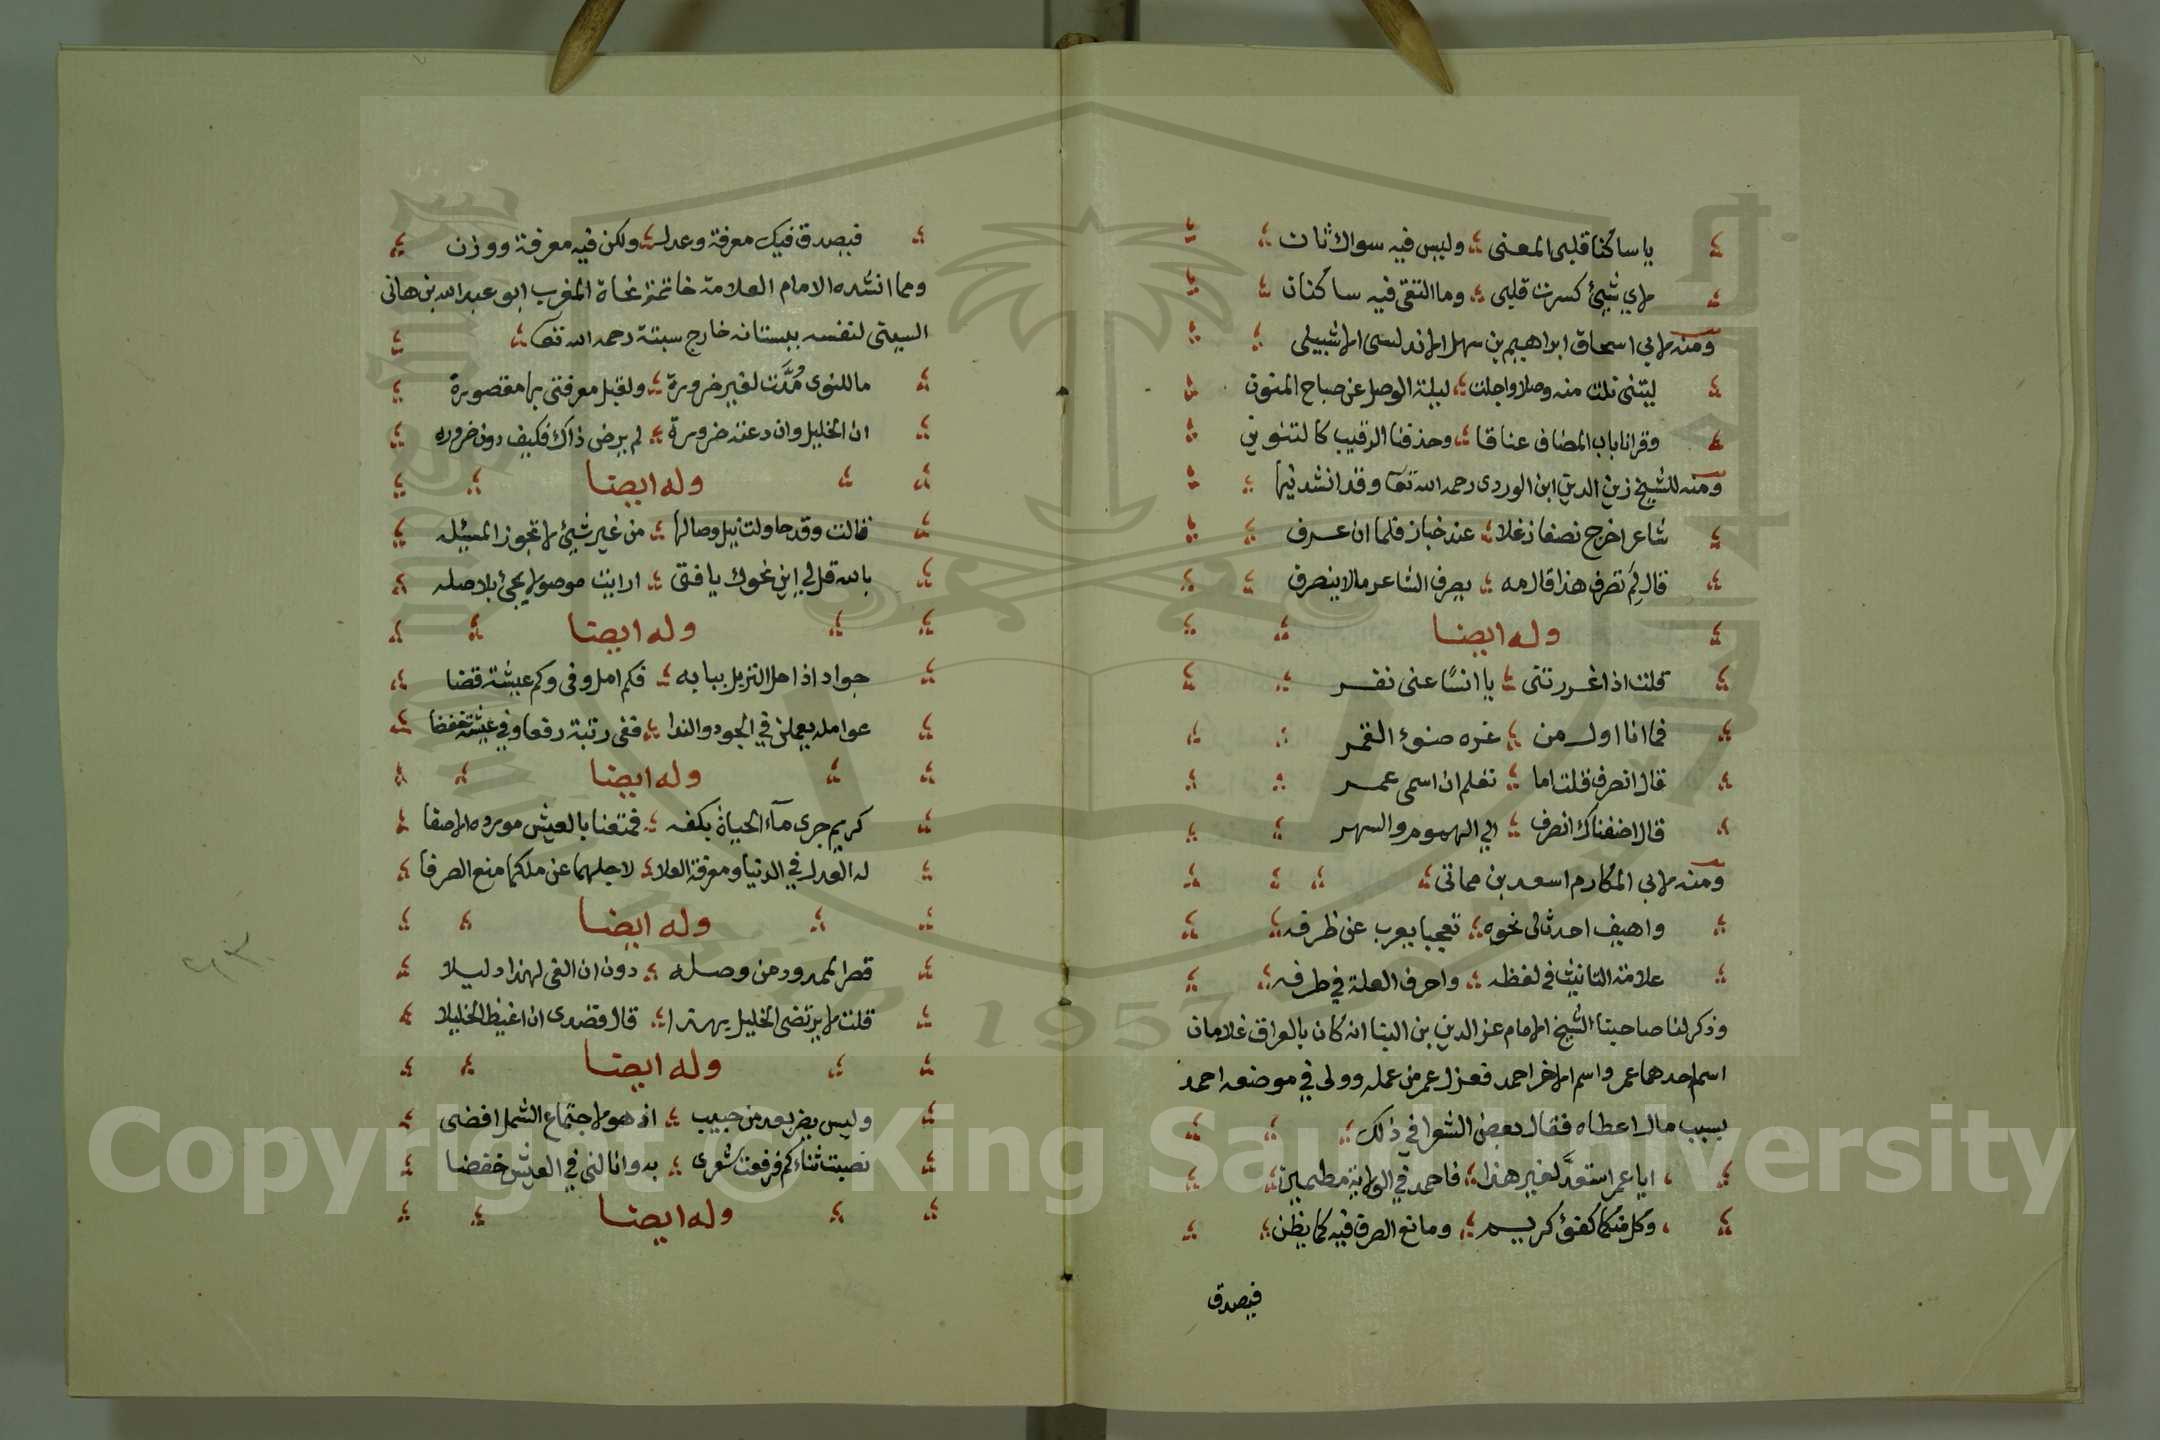 يا ساكنا قلبى المعنى وليس فيه سواك ثان
لاي شيئ كسرت قلبى وما التقى فيه ساكنان
ومنه لابي اسحاق ابراهيم بن سهل الاندلسى الاشبيلى
ليتنى نلت منه وصلا واجلت ليلة الوصل عن صباح المنون
وقرانا باب المضاف عناقا وحذفنا الرقيب كالتنوين
ومنه للشيخ زين الدين ابن الوردى رحمه الله تعا وقد انشد فيها
شاعر اخرج نصفا زغلا عند خباز فلما ان عرف
قال لِمَ تصرف هذا قال مه يصرف الشاعر مالا ينصرف
وله ايضا
قلت اذا غررتنى يا انسًا عنى نفر
فما انا اول من غره ضوء القمر
قال انصرف قلت اما تعلم ان اسمى عمر
قال اضفناك انصرف الي الهموم والسهر
ومنه لابي المكارم اسعد بن مماتى
واهيف احدث لى نحوه تعجبا يعرب عن ظرفه
علامة التانيث فى لفظه واحرف العلة في طرفه
وذكر لنا صاحبنا الشيخ الامام عز الدين بن البنا انه كان بالعراق غلامان
اسم احدهما عمر واسم الاخر احمد فعزل عمر من عمله وولى في موضعه احمد
بسبب مال اعطاه فقال بعض الشعرا في ذلك
ايا عمر استعدّ لغير هذا فاحمد في الولاية مطمين
وكل منكما كفئ كريم ومانع الصرف فيه كما يظن
فيصدق
فيصدق فيك معرفة وعدل ولكن فيه معرفة ووزن
ومما انشده الامام العلامة خاتمة نحاة المغرب ابو عبد الله بن هانى
السبتى لنفسه ببستانه خارج سبتة رحمه الله تعا
ما للنوى مُدَّت لغير ضرورة ولقبل معرفتى بها مقصورة
ان الخليل وان دعته ضرورة لم يرض ذاك فكيف دون ضروره
وله ايضا
قالت وقد حاولت نيل وصالها من غير شيئ لا تجوز المسئله
بالله قل لي اين نحوك يا فتى ارايت موصولا يجئ بلا صله
وله ايضا
جواد اذا حل النزيل ببابه فكم امل وفى وكم عيشة قضا
عوامله يعملن في الجود والندا ففى رتبة رفعا وفي عيشة خفضا
وله ايضا
كريم جرى مآء الحياة بكفه فمتعنا بالعيش مورده الاصفا
له العدل في الدنيا ومعرفة العلا لاجلهما عن ملكها منع الصرفا
وله ايضا
قصر الممدود من وصله دون ان القى لهذا دليلا
قلت لا يرتضى الخليل بهذا قال قصدى ان اغيظ الخليلا
وله ايضا
وليس يضر بعد من حبيب اذ هو لاجتماع الشمل افضى
نصبت ثناءكم فرفعت شعرى به وانالنى في العيش خفضا
وله ايضا